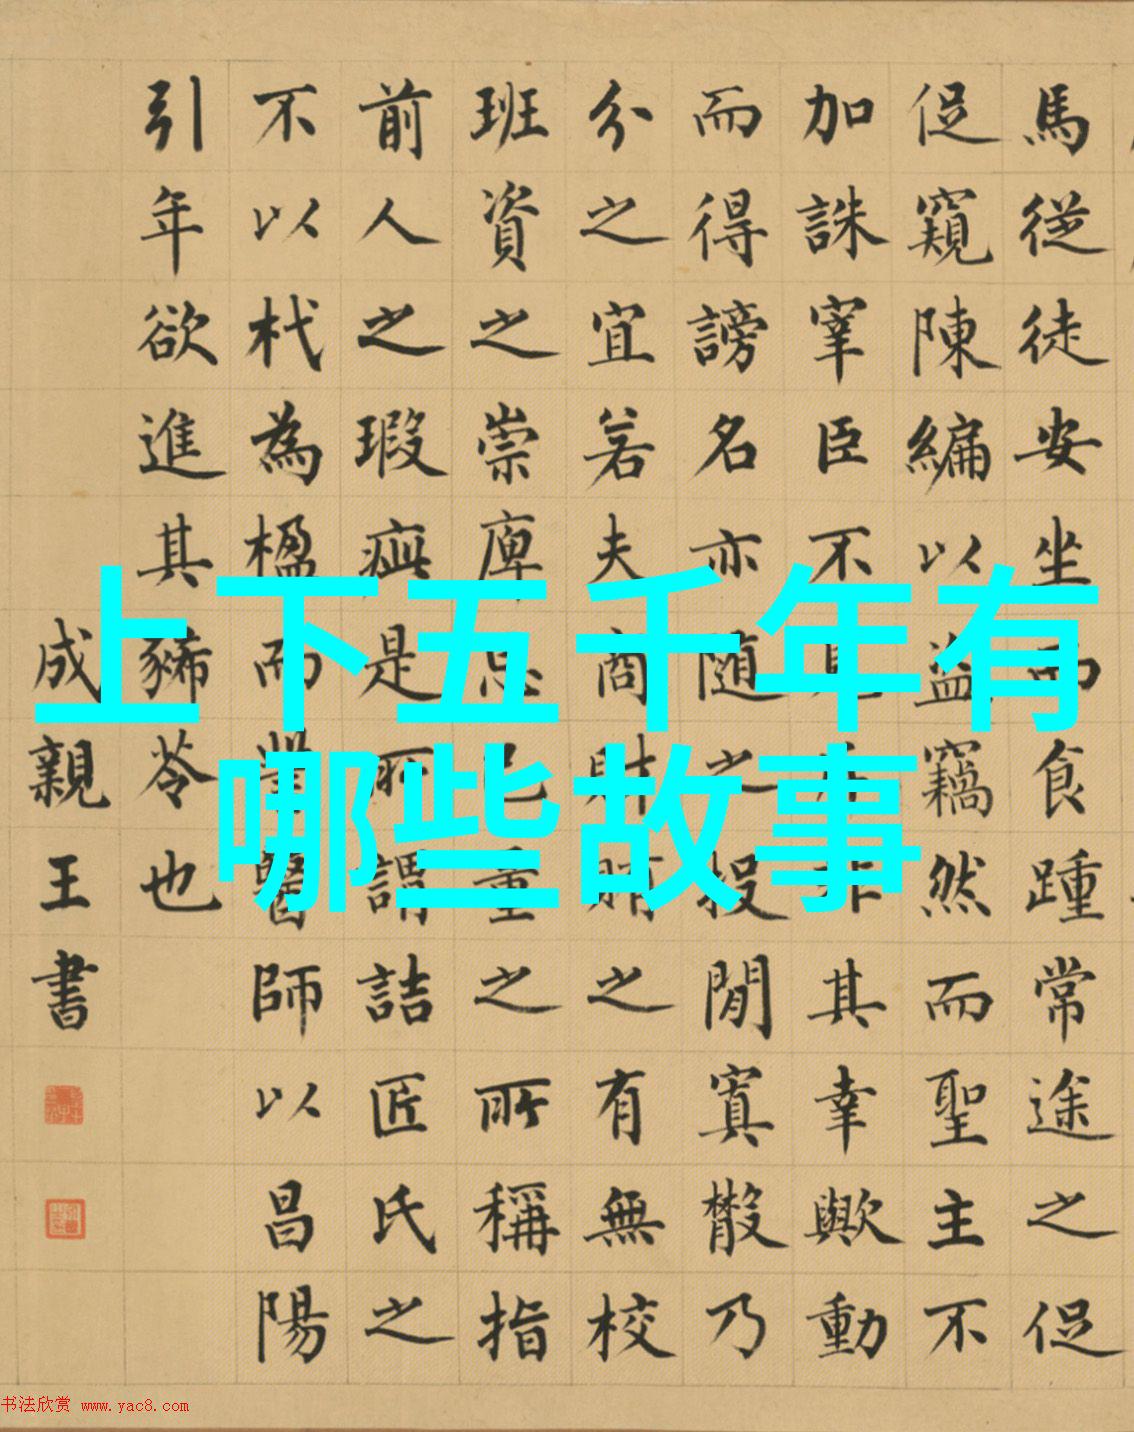 上下五千年有
哪些故事
馬從徒安坐而食踵常途之促
促窺陳編以盜竊然而聖主不
加誅宰臣不見斥非其幸歟動
而得謗名亦随之投閒寘散乃
分之宜若夫商財賄之有無校
班資之崇庳忘己量之所稱指
前人之瑕疵是所謂詰匠氏之
不以杙為楹而訾醫師以昌陽
引年欲進其豨苓也
成親王書
书法欣赏 www.yac8.com